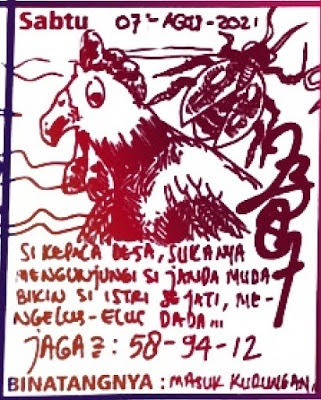 Sabtu 07-AGU-2021
SI KEPALA DESA, SUKANYA
MENGUNJUNGI SI JANDA MUDA
BIKIN SI ISTRI SEJATI, ME-
NGELUS-ELUS DADA...
JAGA2: 58-94-12
BINATANGNYA : MASUK KUDUNGAN.